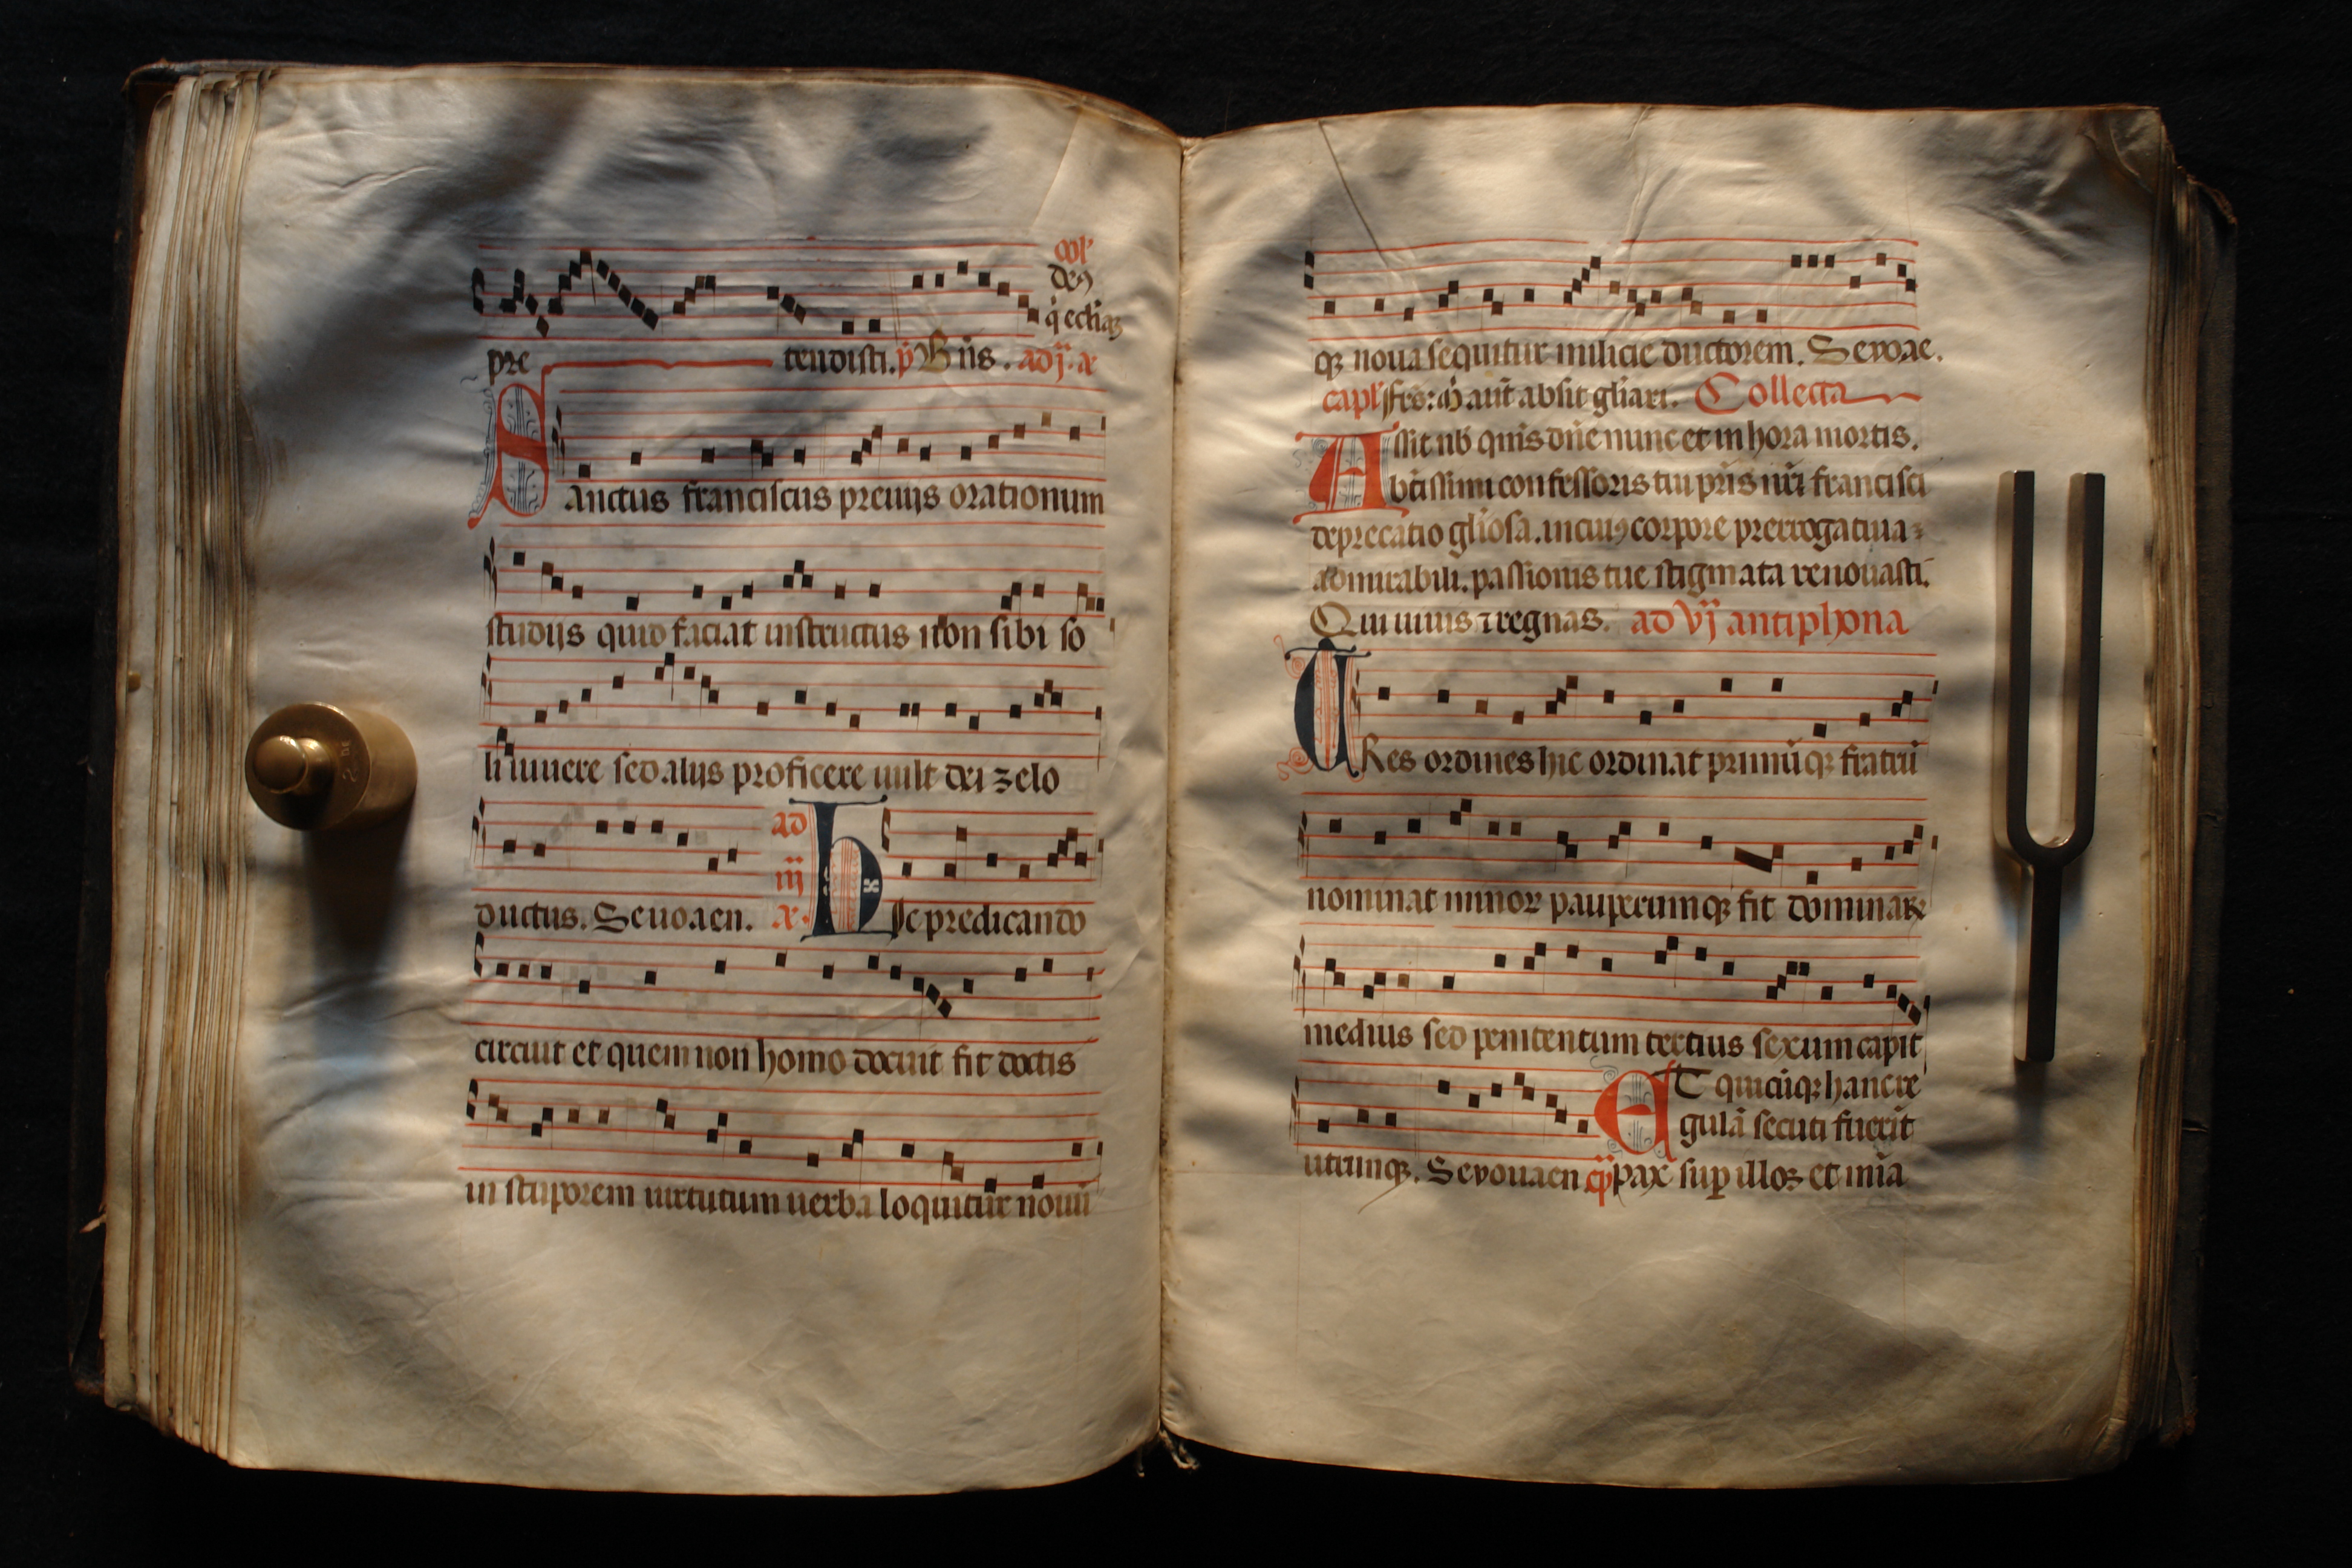 col'
deꝰ
q̇ ecclīaꝫ
pre tendisti. p̄ B n̄s. ad ij. a
Sanctus franciscus preuijs orationum
studijs quid faciat instructus non sibi so
li uiuere sed alijs proficere uult dei zelo
ductus. Seuouaen. ad iij a. Hic predicando
circuit et quem non homo docuit fit doctis
in stuporem uirtutum uerba loquitur nouū
qꝫ noua sequitur milicie ductorem. Seuouae.
capl' frēs: m̄ aūt absit gl̄iari. Collecta
Assit nb̄ quis dn̄e nunc et in hora mortis.
bt̄issimi confessoris tui pr̄is nr̄i francisci
deprecatio gl̄iosa. in cuiꝰ corpore prerrogatiua
admirabili. passionis tue stigmata renouasti.
Qui uiuis ⁊ regnas. ad vj antiphona
TRes ordines hic ordinat primūqꝫ fratrū
nominat minor pauperumqꝫ fit dominaꝝ
medius sed penitentum tertius sexum capit
ET quicūqꝫ hanc re
gulā secuti fuerīt
utrumqꝫ. Seuouaen pax suꝑ illos et mīa